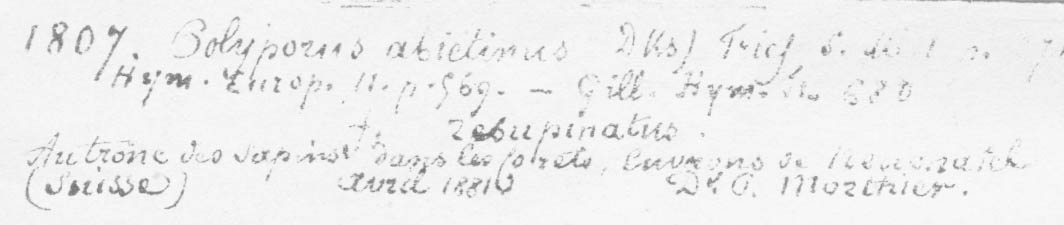 1807. Polyporus abietinus Dks) Fries S. M. 1
Hym. Europ. 11. p. 569. — Gill. Hym. 680
† resupinatus.
Au trône des sapins dans les forêts, Environs de Neuchatel
(Suisse) Avril 1881 Dr. P. Morthier.